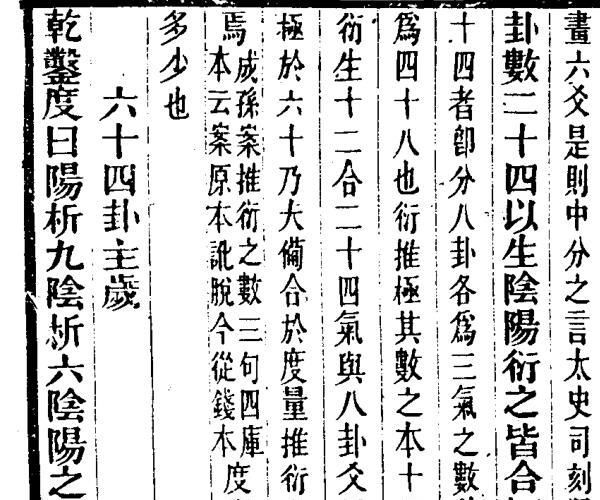 畫六爻是則中分之言太史司刻
卦數二十四以生陰陽衍之皆合
十四者卽分八卦各爲三氣之數
爲四十八也衍推極其數之本十
衍生十二合二十四氣與八卦爻
極於六十乃大備合於度量推衍
焉成孫案推衍之數三句四庫
本云案原本訛脫今從錢本度
多少也
六十四卦主歲
乾鑿度曰陽析九陰析六陰陽之